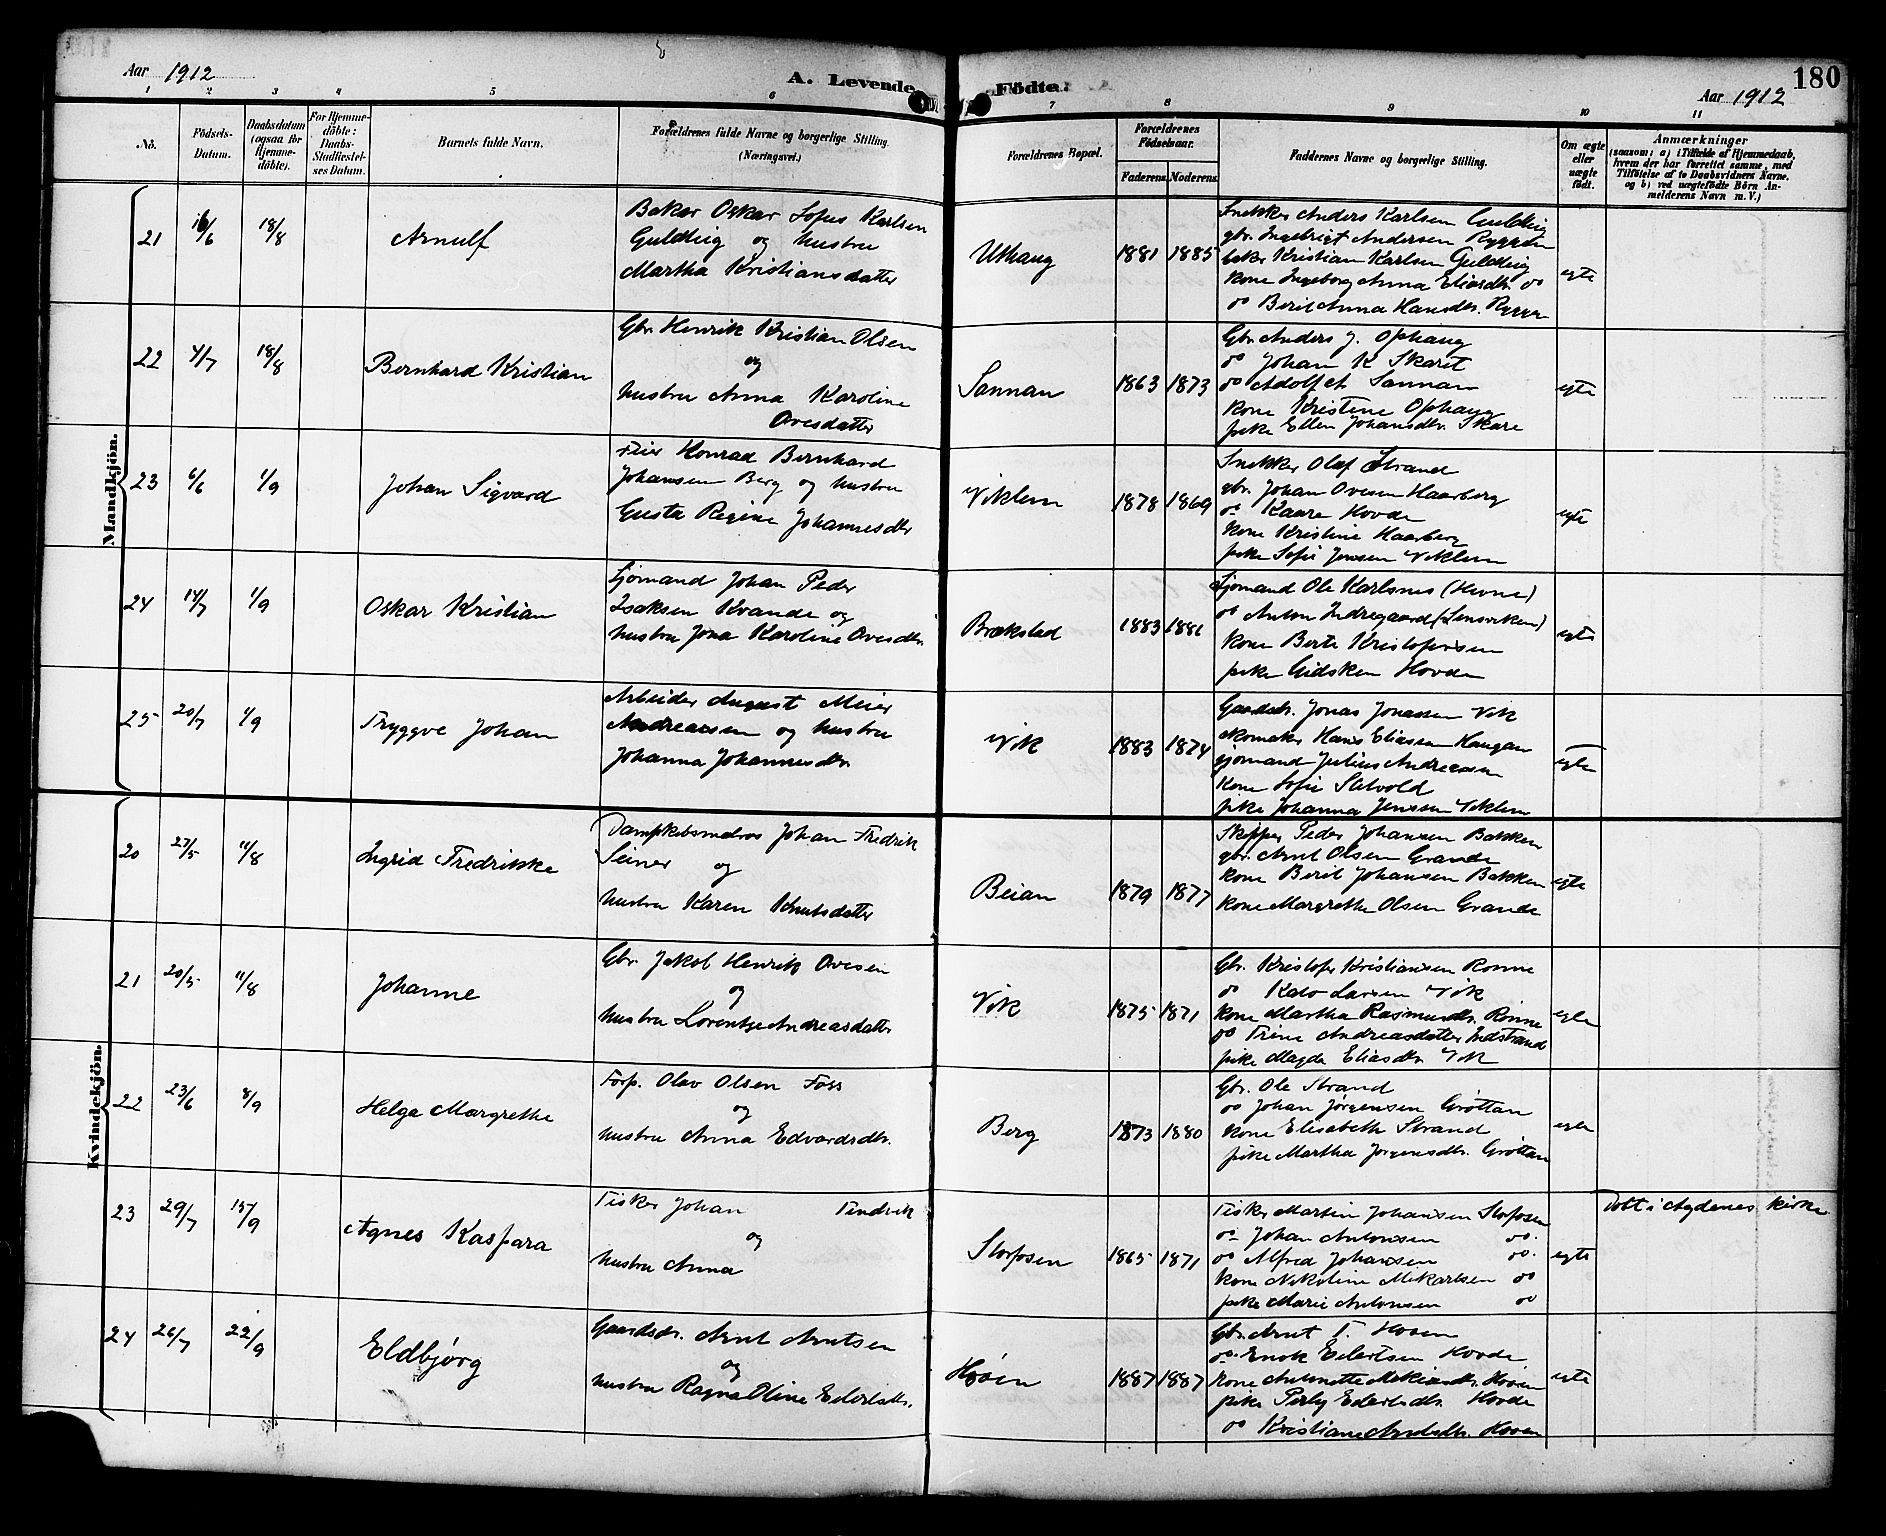 Aar 1912
A. Levende
Födte.
Aar 1912
180
1 2 3 4 5 6 7 8 9 10 11
No.
Födsels-Datum.
Daabsdatum (ogsaa for Hjemme-döbte).
For Hjemme-döbte: Daabs-Stadfæstel-ses Datum.
Barnets fulde Navn.
Forældrenes fulde Navne og borgerlige Stilling. (Næringsvei.)
Forældrenes Bopæl.
Forældrenes Födselsaar.
Faderens. Moderens.
Faddernes Navne og borgerlige Stilling.
Om ægte eller uægte födt.
Anmærkninger
(saasom: a) i Tilfælde af Hjemmedaab, hvem der har forrettet samme, med Tilföielse af to Daabsvidners Navne. og b) ved uægtefödte Börn An-melderens Navn m. V.)
Mandkjön.
21 16/6 18/8 Arnulf
Baker Oskar Sofus Karlsen
Guldteig og hustru
Martha Kristiansdatter
Uthaug 1881 1885
Snekker Anders Karlsen Guldteig
gbr. Ingebrigt Andersen Ryggen
Kristian Karlsen Guldteig
kone Ingeborg Anna Eliasdtr. do
do Berit Anna Hansdtr. Rygge
egte
22 4/7 18/8 Bernhard Kristian
Gbr. Henrik Kristian Olsen
og
hustru Anna Karoline
Ovesdatter
Sannan 1863 1873
Gbr. Anders J. Ophaug
do Johan K Skaret
do Adolf A. Sannan
kone Kristine Ophaug
pike Ellen Johansdtr. Skare
egte
23 6/6 1/9 Johan Sigvard
Feier Konrad Bernhard
Johansen Berg og hustru
Gusta Regine Johannesdtr
Viklem 1878 1869
Snekker Olaf Strand
gbr. Johan Ovesen Haarberg
do Kaare Hovde
kone Kristine Haarberg
pike Sofie Jensen Viklem
egte
24 14/7 1/9 Oskar Kristian
Sjømand Johan Peder
Isaksen Kvande og
hustru Jona Karoline Ovesdtr.
Brækstad 1883 1881
Sjømand Ole Karlsnes (Hevne)
do Anton Indregaard (Lensviken)
kone Berte Kristofersen
pike Gidsken Hovde
egte
25 20/7 1/9 Tryggve Johan
Arbeider August Meier
Andreassen og hustru
Johanna Johannesdtr.
Vik 1883 1874
Gaardbr. Jonas Jonassen Vik
skomaker Hans Eliasen Haugan
sjømand Julius Andreassen
kone Sofie Sætvold
pike Johanna Jenssen Viklem
egte
Kvindekjön.
20 27/5 11/8 Ingrid Fredrikke
Dampskibsmatros Johan Fredrik
Seiner og
hustru Karen Knutsdatter
Beian 1879 1877
Skipper Peder Johansen Bakken
gbr. Arnt Olsen Grande
kone Berit Johansen Bakken
kone Margrethe Olsen Grande
egte
21 20/5 11/8 Johanne
Gbr. Jakob Henrik Ovesen
og
hustru Lorentze Andreasdatter
Vik 1875 1871
Gbr. Kristofer Kristiansen Rønne
do Larsen Vik
kone Martha Rasmusdtr. Rønne
do Trine Andreasdatter Indstrand
pike Magda Eliasdtr. Vik
egte
22 23/6 8/9 Helga Margrethe
Forp. Olav Olsen Foss
og
hustru Anna Edvardsdtr.
Berg 1873 1880
Gbr. Ole Strand
do Johan Jørgensen Grøttan
kone Elisabeth Strand
pike Martha Jørgensdtr. Grøttan
egte
23 29/7 15/9 Agnes Kaspara
Fisker Johan Tindvik
og
hustru Anna
Storfosen 1865 1871
Fisker Martin Johansen Storfosen
do Johan Antonsen do.
do Alfred Johansen do.
kone Nikoline Mikarlsen do
pike Marie Antonsen do
egte
Døbt i Agdenes kirke
24 26/7 22/9 Eldbjørg
Gaardsbr. Arnt Arntsen
og
hustru Ragna Oline Eilertsdtr.
Høien 1887 1887
Gbr. Arnt T. Hoven
do. Enok Eilertsen Hovde
kone Antonette Høien
pike Perly Eilertsdtr. Hovde
do Kristiane Arntsdtr. Hoven
egte